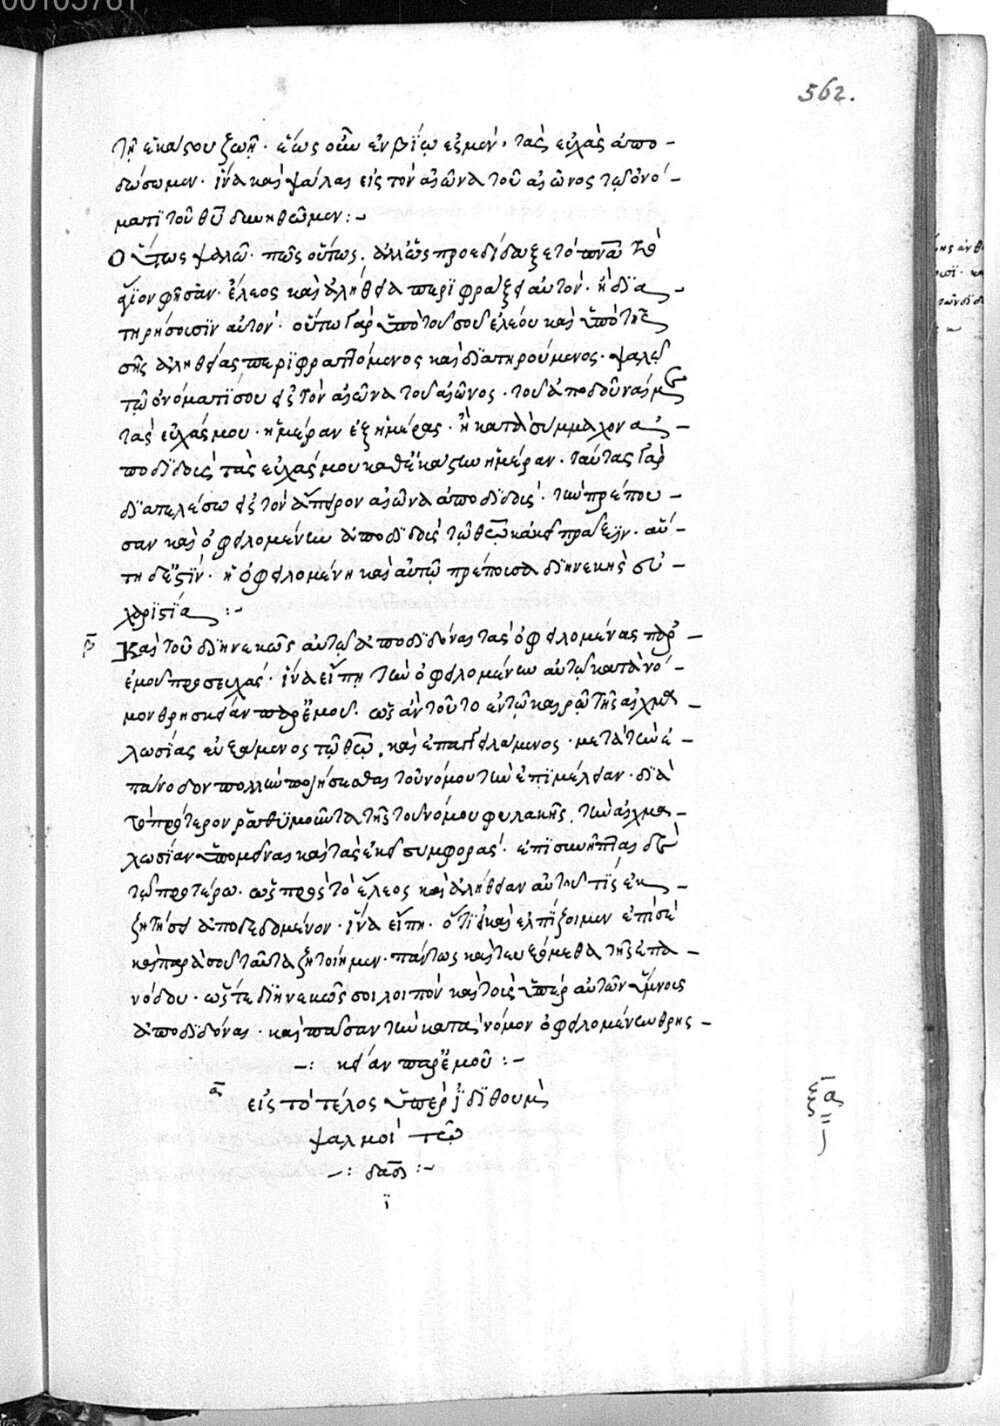 00105761
562.
τῇ ἑκάστου ζωῇ· ἕως οὖν ἐν βίῳ ἐσμέν, τὰς εὐχὰς ἀπο-
δώσωμεν· ἵνα καὶ ψάλας εἰς τὸν αἰῶνα τοῦ αἰῶνος τῷ ὀνό-
ματι τοῦ θῦ δυνηθῶμεν :-
Οὕτως ψαλῶ· πῶς οὕτως, ἀλλ' ὡς προεδίδαξε τὸ πνᾶ τὸ
ἅγϊον φῆσαν· ἔλεος καὶ ἀλήθεια περιφράξει αὐτόν· ἢ δϊα-
τηρήσουσϊν αὐτόν· οὕτω γὰρ ὑπὸ τοῦ σοῦ ἐλέου καὶ ὑπὸ τῆς
σῆς ἀληθείας περϊφραττόμενος καὶ δϊατηρούμενος· ψαλῶ
τῷ ὀνόματί σου εἰς τὸν αἰῶνα τοῦ αἰῶνος· τοῦ ἀποδοῦναί με
τὰς εὐχάς μου· ἡμέραν ἐξ ἡμέρας· ἢ κατὰ σύμμαχον ἀ-
ποδϊδοὺς τὰς εὐχάς μου καθ' ἑκάστην ἡμέραν· ταύτας γὰρ
δϊατελέσω εἰς τὸν ἄπειρον αἰῶνα ἀποδϊδούς· τὴν πρέπου-
σαν καὶ ὀφειλομένην ἀποδϊδοὺς τῷ θεῷ κἀκεῖ· αὕ-
τη δέ ἐστϊν· ἡ ὀφειλομένη καὶ αὐτῷ πρέπουσα διηνεκὴς εὐ-
χαριστία :-
β Καὶ τοῦ διηνεκῶς αὐτῷ ἀποδϊδόναι τὰς ὀφειλομένας παρ'-
ἐμοῦ προσευχάς· ἵνα εἴπη τὴν ὀφειλομένην αὐτῷ κατὰ νό-
μον θρησκείαν παρ' ἐμοῦ· ὡς ἂν τοῦτο ἐν τῷ καιρῷ τῆς αἰχμα-
λωσίας εὐξάμενος τῷ θεῷ, καὶ ἐπαγγειλάμενος· μετὰ τὴν ἐ-
πάνοδον πολλὴν ποιήσασθαι τοῦ νόμου τὴν ἐπϊμέλειαν· διὰ
τὸ πρότερον ῥαθυμοῦντα τῆς τοῦ νόμου φυλακῆς, τὴν αἰχμα-
λωσίαν ὑπομεῖναι καὶ τὰς ἐκεῖ συμφοράς· ἐπϊσυνῆπται δὲ
τῷ προτέρω· ὡς πρὸς τὸ ἔλεος καὶ ἀλήθειαν αὐτοῦ τίς ἐκ-
ζητήσει ἀποδεδομένον· ἵνα εἴπη· ὅτϊ καὶ ἐλπίζοιμεν ἐπὶ σὲ
καὶ παρὰ σοῦ ταῦτα ζητοίημεν· πάντως καὶ τευξόμεθα τῆς ἐπα-
νόδου· ὥστε διηνεκῶς σοι λοιπὸν καὶ τοὺς ὑπὲρ αὐτῶν ὕμνους
ἀποδϊδόναι· καὶ πᾶσαν τὴν κατὰ νόμον ὀφειλομένην θρης-
-: κείαν παρ' ἐμοῦ :-
α εἰς τὸ τέλος ὑπὲρ ϊδϊθοὺμ
ξα
ψαλμοὶ τῷ
-: δαδ :-
ϊ